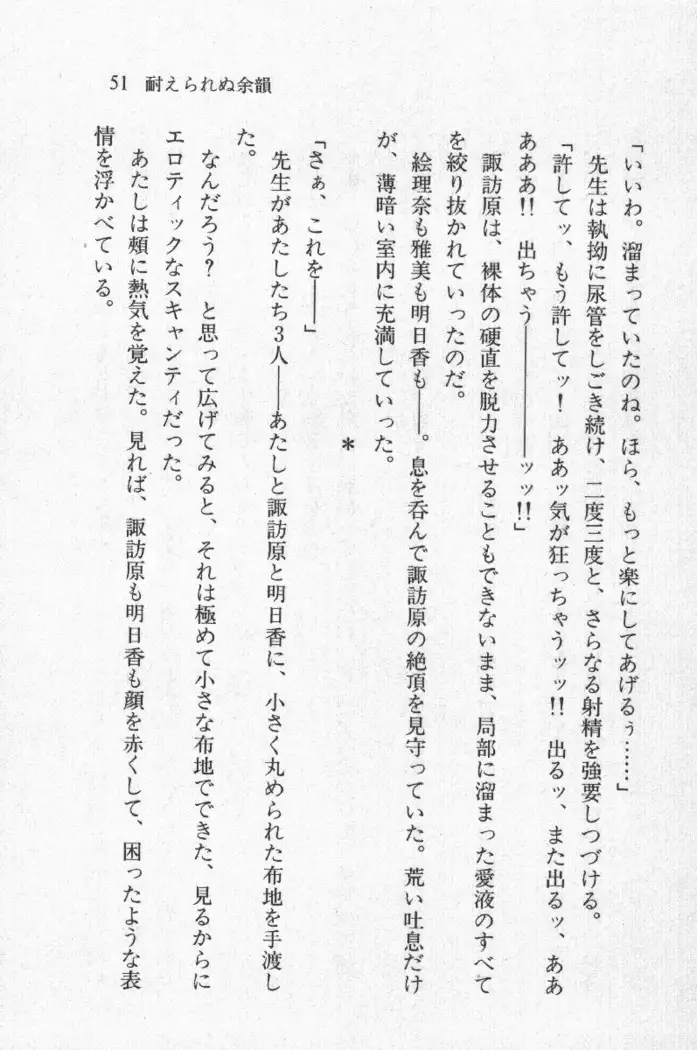 51 耐えられぬ余韻
「いいわ。溜まっていたのね。ほら、もっと楽にしてあげるぅ……」
先生は執拗に尿管をしごき続け、二度三度と、さらなる射精を強要しつづける。
「許してッ、もう許してッ！ ああッ気が狂っちゃうッッ!! 出るッ、また出るッ、ああ
あああ!! 出ちゃう――――ッッ!!」
諏訪原は、裸体の硬直を脱力させることもできないまま、局部に溜まった愛液のすべて
を絞り抜かれていったのだ。
絵理奈も雅美も明日香も――。息を呑んで諏訪原の絶頂を見守っていた。荒い吐息だけ
が、薄暗い室内に充満していった。
＊
「さぁ、これを――」
先生があたしたち3人――あたしと諏訪原と明日香に、小さく丸められた布地を手渡し
た。
なんだろう？ と思って広げてみると、それは極めて小さな布地でできた、見るからに
エロティックなスキャンティだった。
あたしは頰に熱気を覚えた。見れば、諏訪原も明日香も顔を赤くして、困ったような表
情を浮かべている。